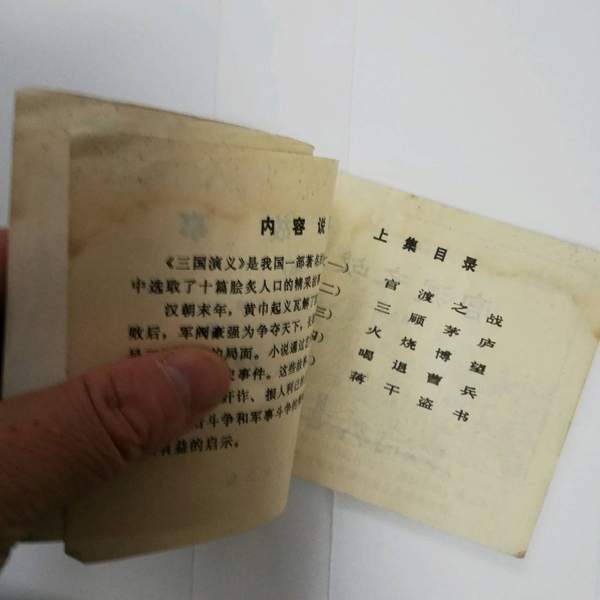 内容说
《三国演义》是我国一部著名
中选取了十篇脍炙人口的精采故事
汉朝末年，黄巾起义瓦解了
败后，军阀豪强为争夺天下，
的局面。小说通过
事件。这些故事
奸诈、损人利己
斗争和军事斗争的
有益的启示。
上集目录
（一）官渡之战
（二）三顾茅庐
（三）火烧博望
喝退曹兵
蒋干盗书